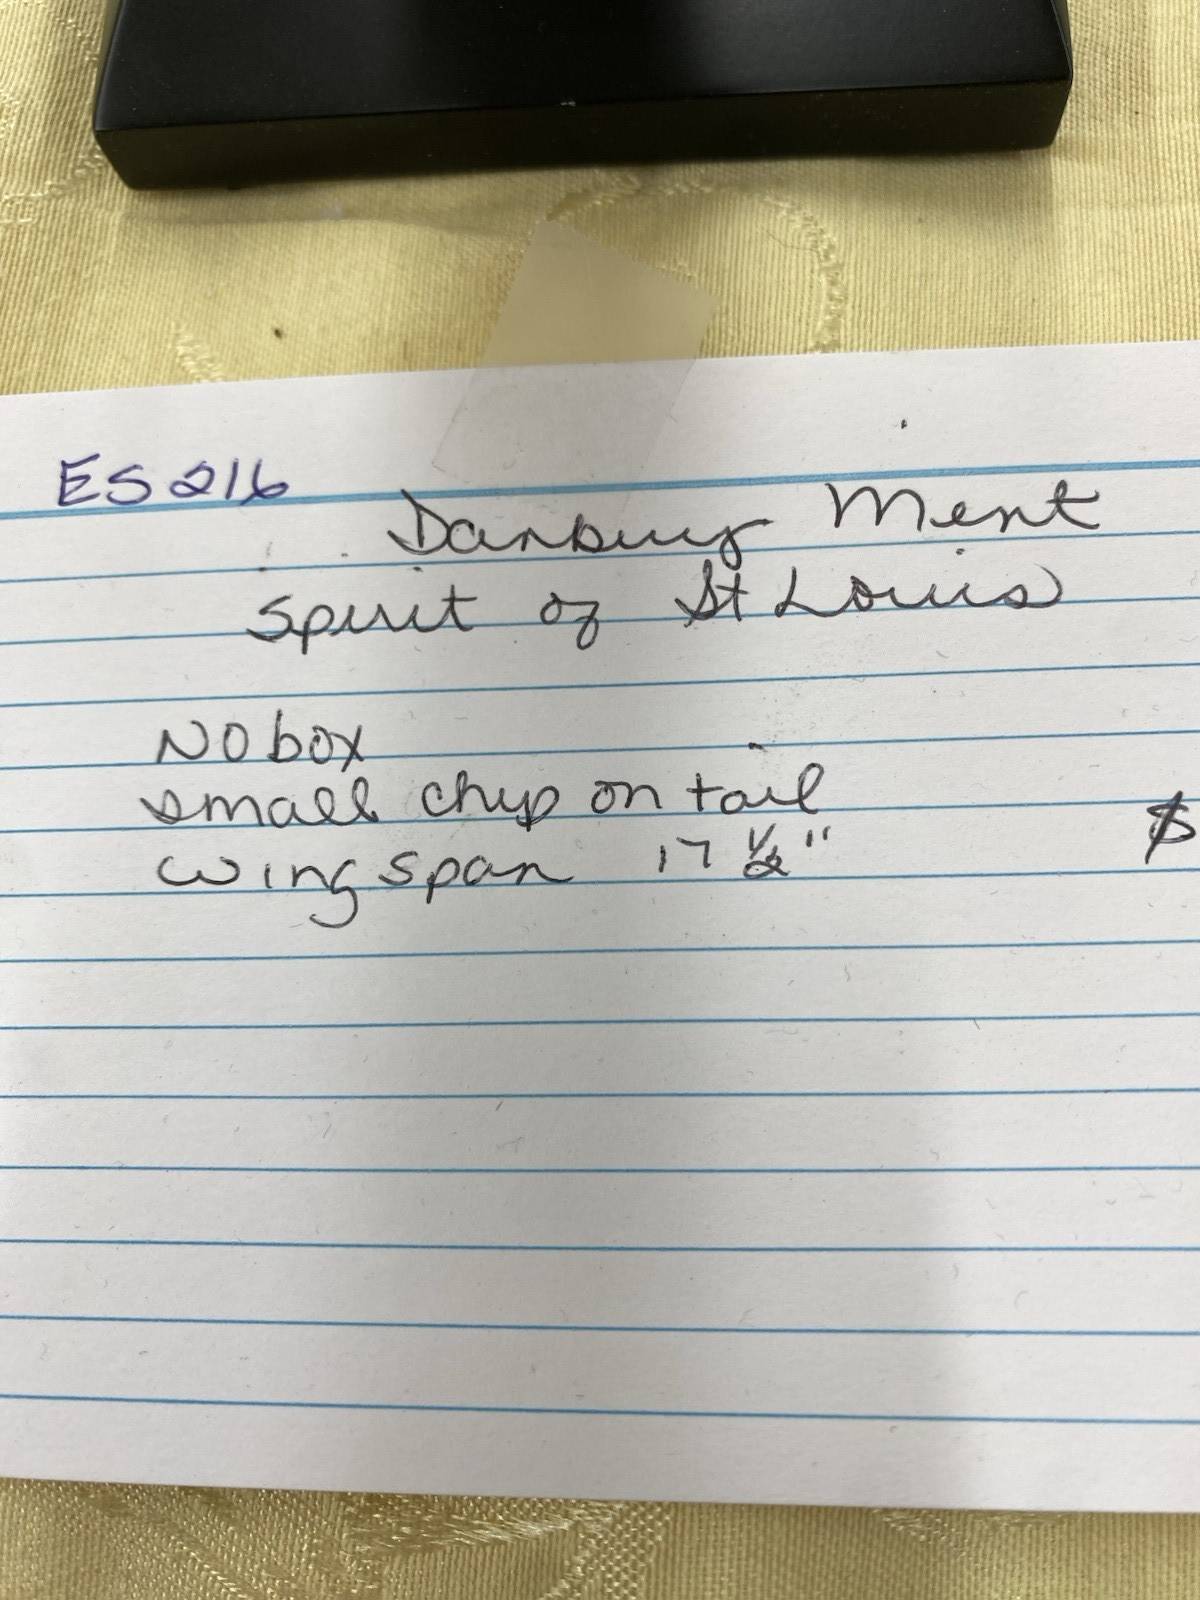 ES216
Danbury Ment
Spirit of St Louis
NO box
small chip on tail
wing span 17 1/2"
$